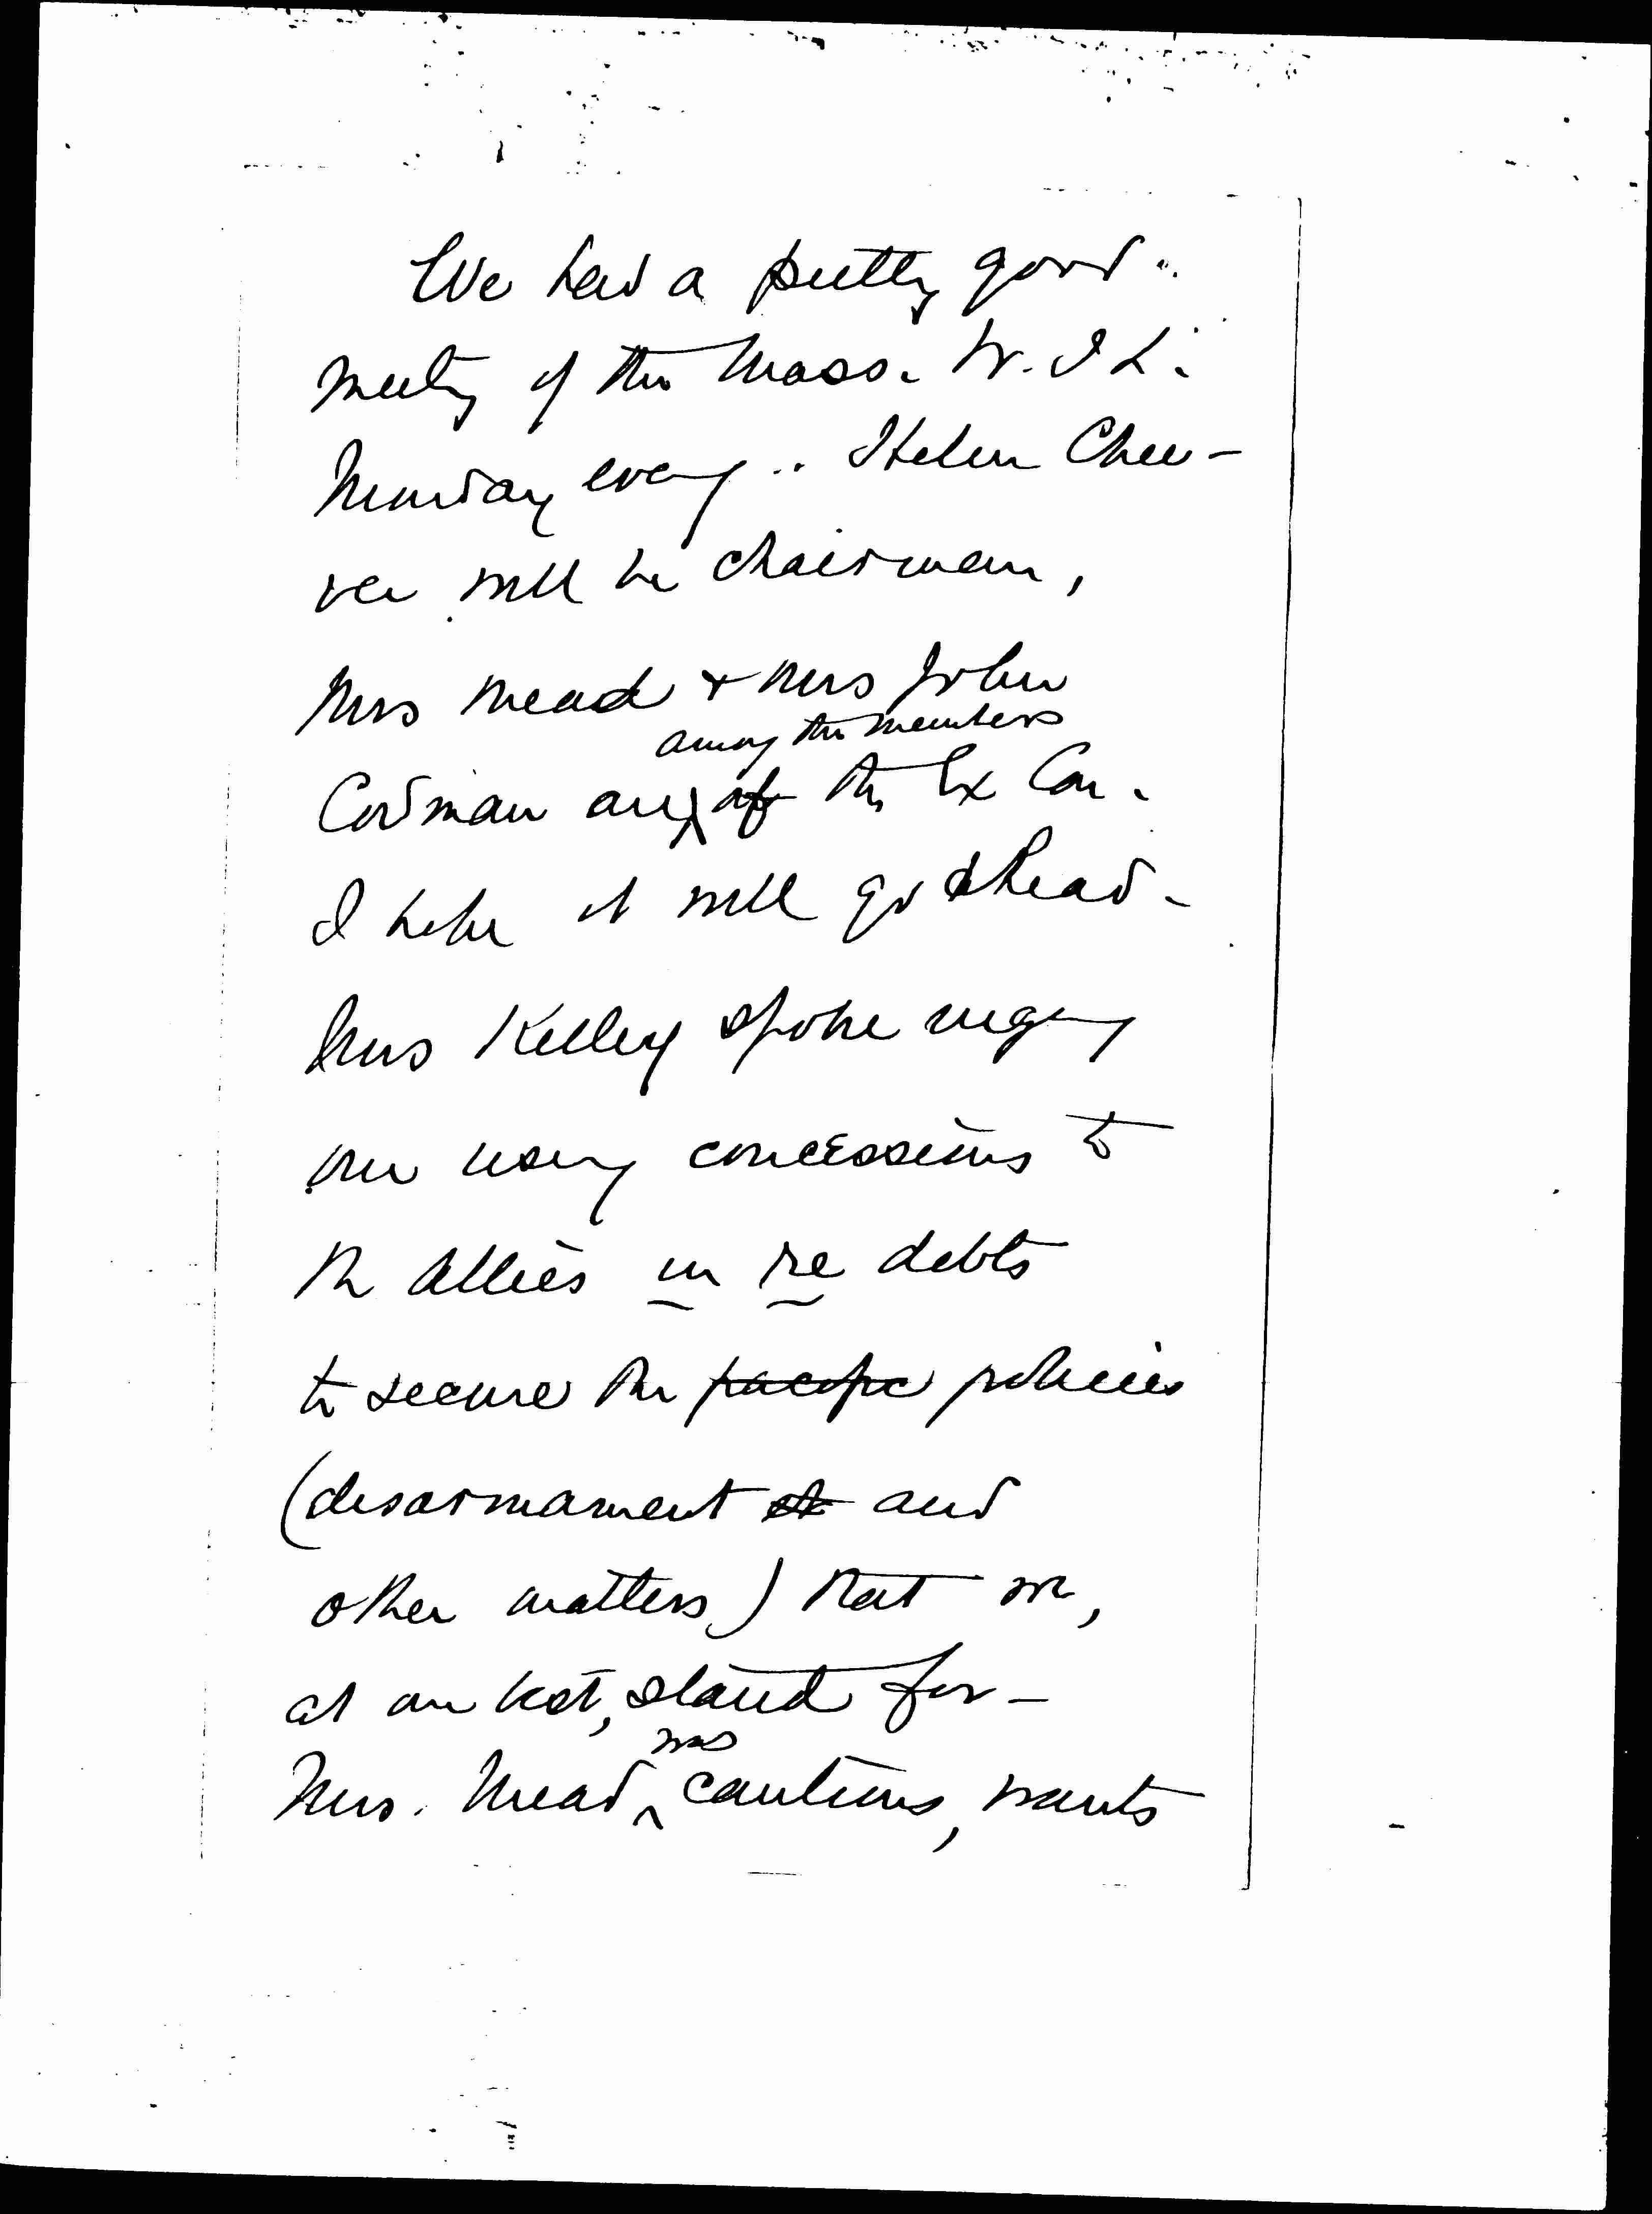 We had a pretty good
meeting of the Mass. W. I L.
Monday eveng.. Helen Chee-
ver will be chairman,
Mrs Mead & Mrs John
among the members
Codman are of the Ex Com.
I hope it will go ahead-
Mrs Kelley spoke urging
our using concessions to
the Allies in re debts
to secure the pacific policies
(disarmament etc and
other matters) that we,
at our best, stand for-
was
Mrs. Mead cautious, wants